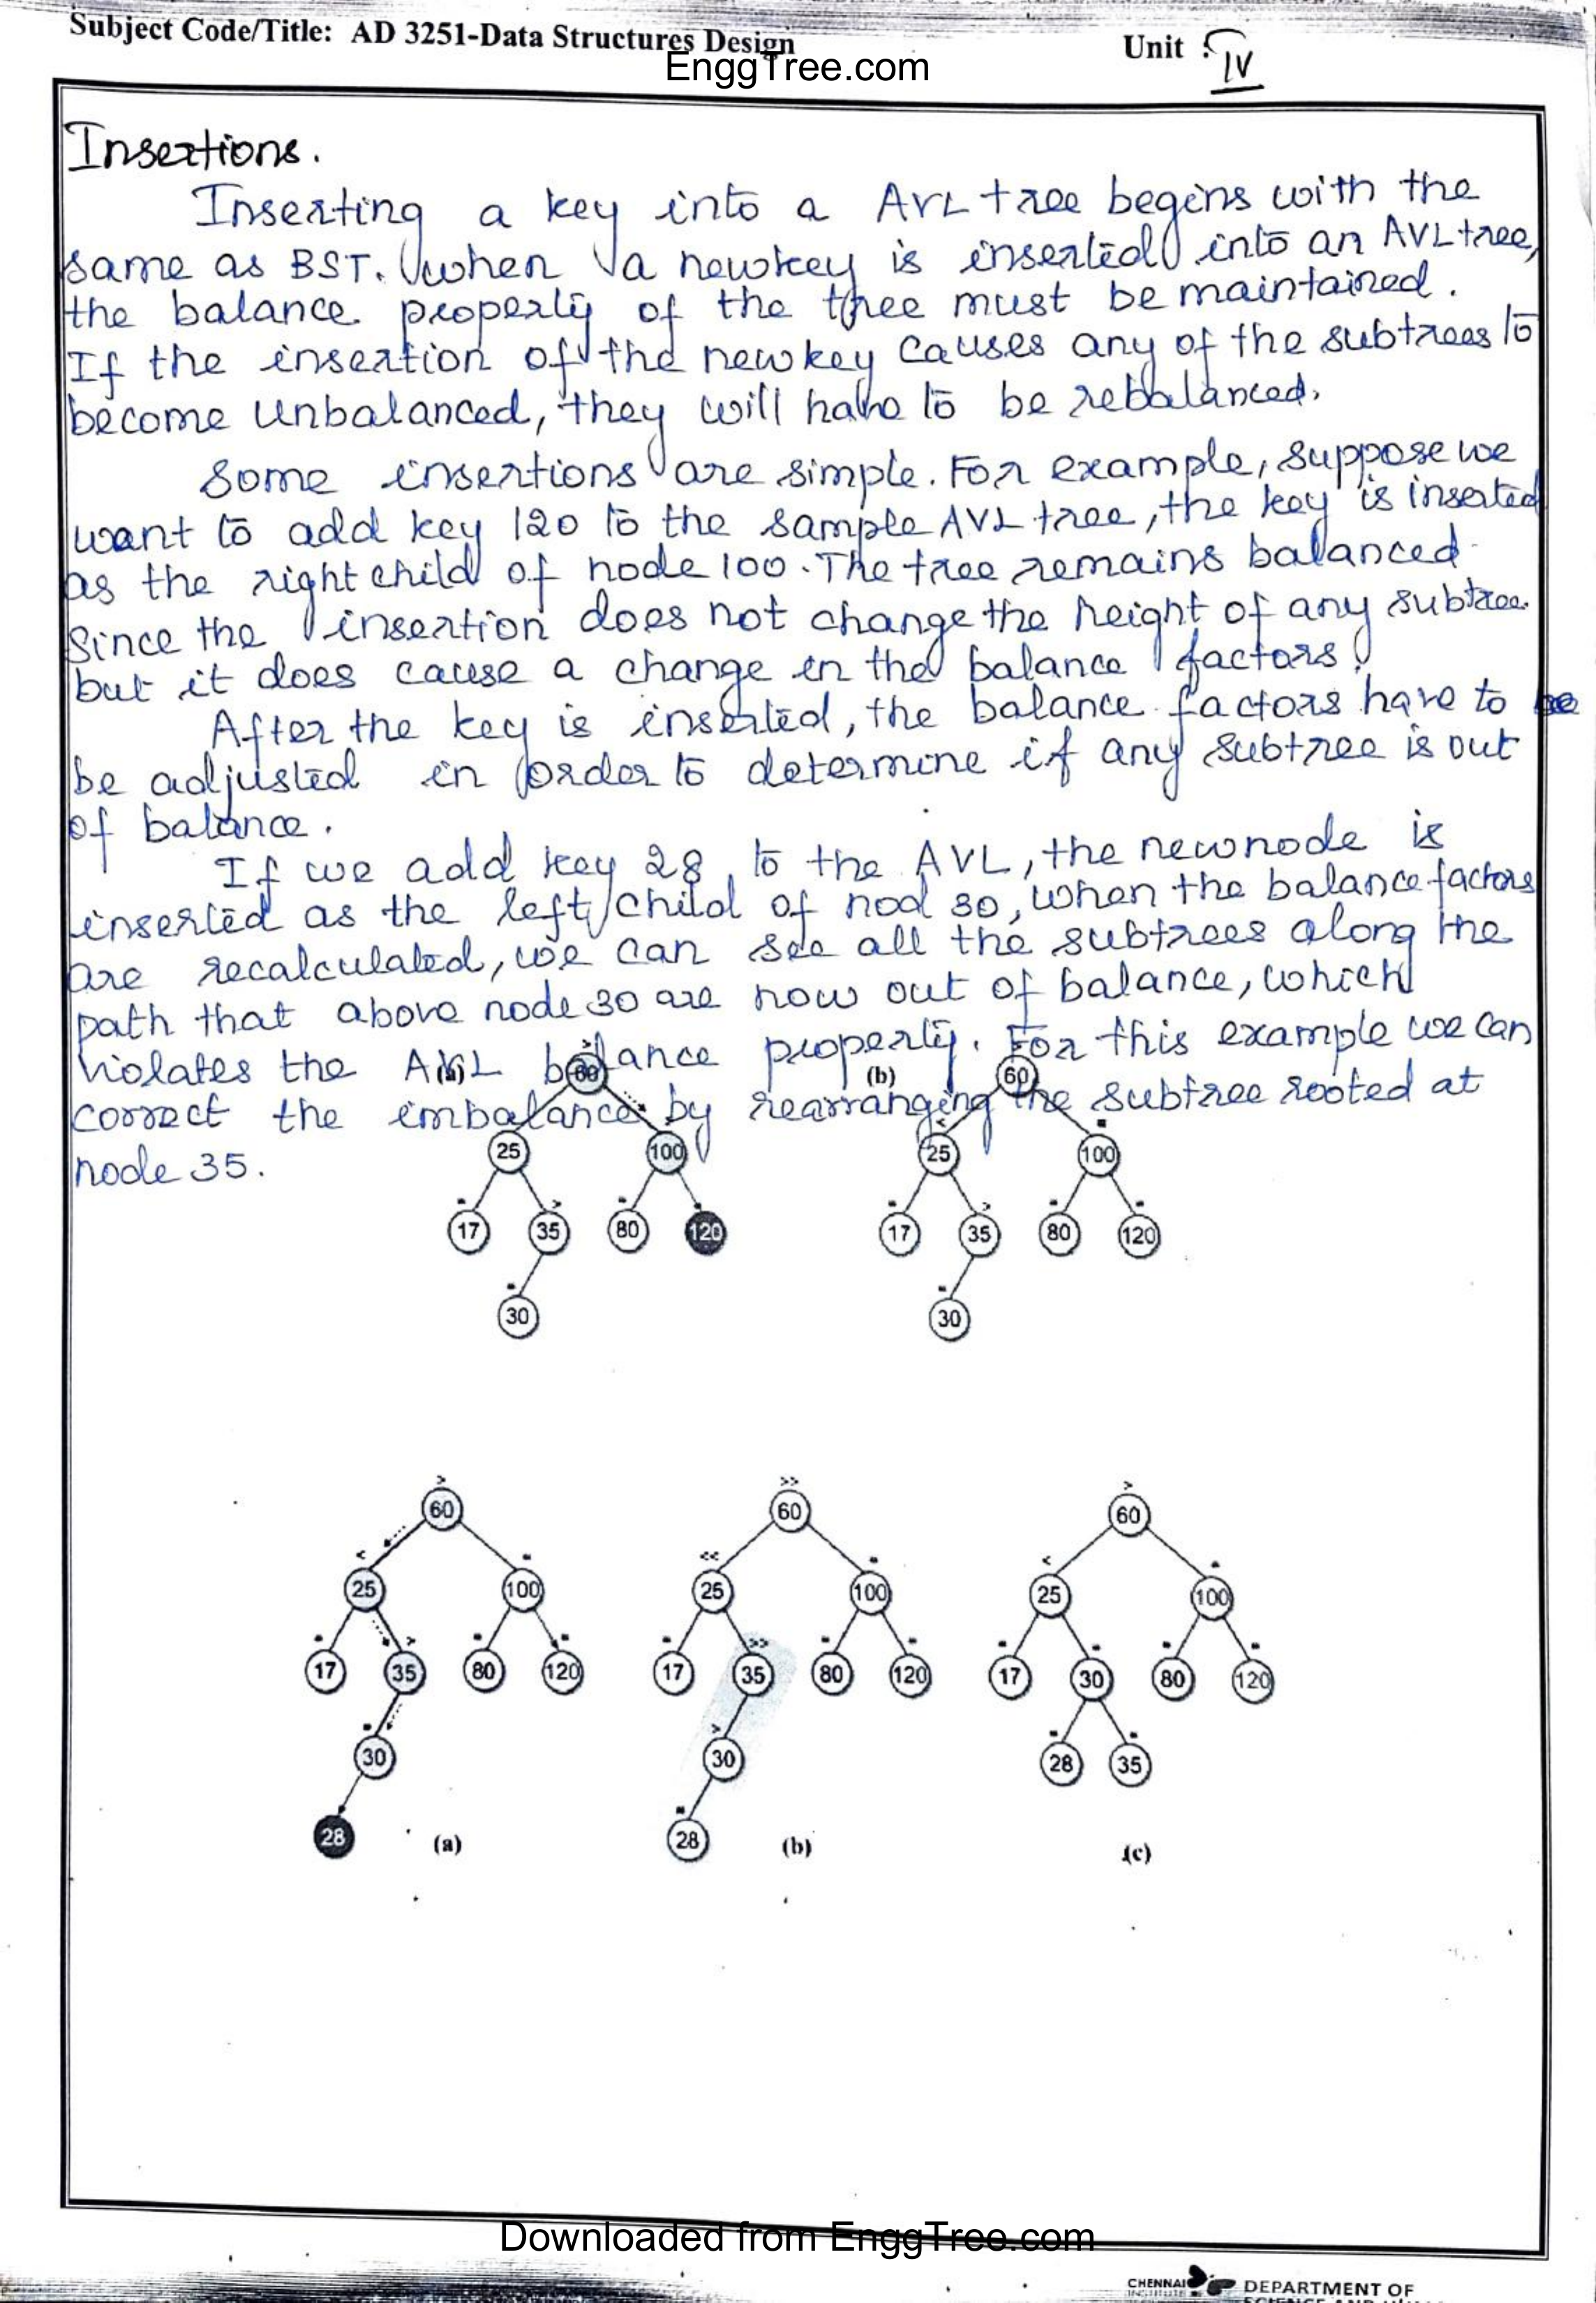 Subject Code/Title: AD 3251-Data Structures Design
EnggTree.com
Unit : IV
Insertions.
Inserting a key into a AVL tree begins with the
same as BST. when a newkey is inserted into an AVL tree,
the balance property of the tree must be maintained.
If the insertion of the new key causes any of the subtrees to
become unbalanced, they will have to be rebalanced.
Some insertions are simple. For example, suppose we
want to add key 120 to the sample AVL tree, the key is inserted
as the right child of node 100. The tree remains balanced
since the insertion does not change the height of any subtree
but it does cause a change in the balance factors.
After the key is inserted, the balance factors have to be
be adjusted in order to determine if any subtree is out
of balance.
If we add key 28 to the AVL, the newnode is
inserted as the left child of nod 30, when the balance factors
are recalculated, we can see all the subtrees along the
path that above node 30 are now out of balance, which
violates the AVL balance property. For this example we can
correct the imbalance by rearranging the subtree rooted at
node 35.
> 60 (b) 60
< =
25 100 25 100
= > = = > = =
17 35 80 120 17 35 80 120
= =
30 30
> >> >
60 60 60
< = << = < =
25 100 25 100 25 100
= > = = = >> = = = = = =
17 35 80 120 17 35 80 120 17 30 80 120
= > = =
30 30 28 35
= 
28 (a) 28 (b) (c)
Downloaded from EnggTree.com
CHENNAI
INSTITUTE
DEPARTMENT OF